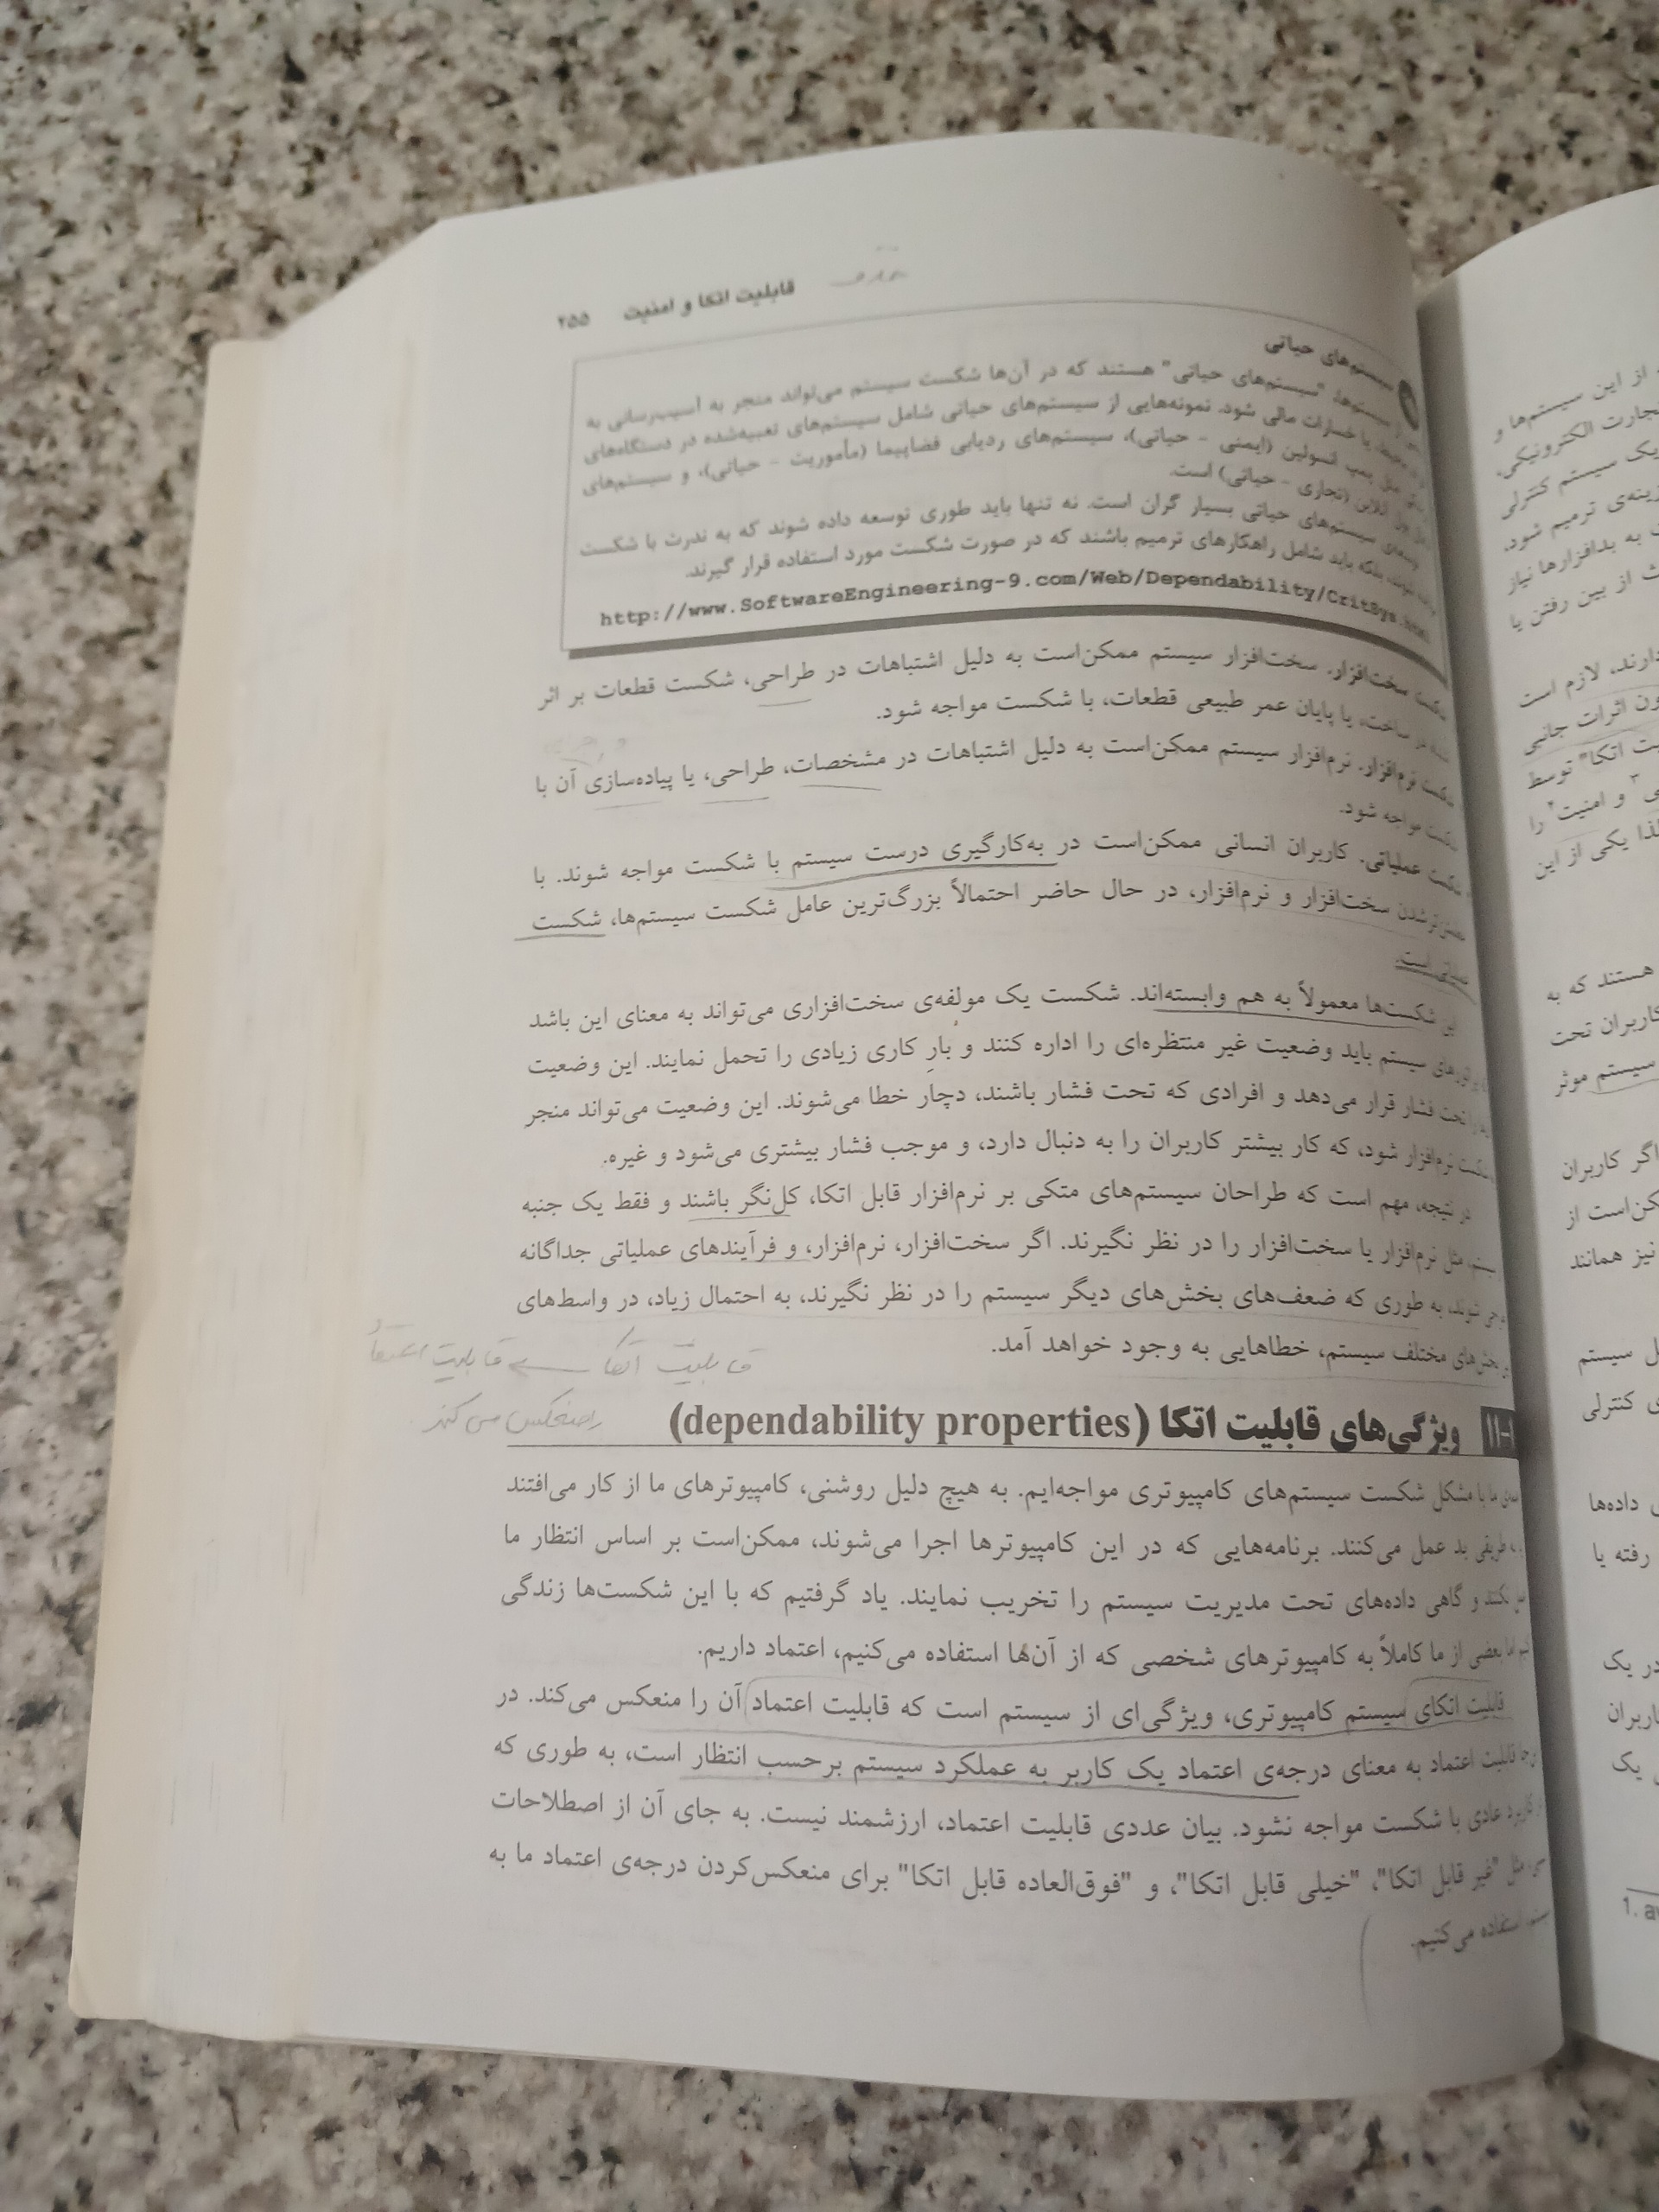 قابلیت اتکا و امنیت ۲۵۵
سیستم‌های حیاتی
سیستم‌ها، "سیستم‌های حیاتی" هستند که در آن‌ها شکست سیستم می‌تواند منجر به آسیب‌رسانی به
محیط، یا خسارات مالی شود. نمونه‌هایی از سیستم‌های حیاتی شامل سیستم‌های تعبیه‌شده در دستگاه‌های
مثل پمپ انسولین (ایمنی - حیاتی)، سیستم‌های ردیابی فضاپیما (مأموریت - حیاتی)، و سیستم‌های
پول آنلاین (تجاری - حیاتی) است.
سیستم‌های حیاتی بسیار گران است. نه تنها باید طوری توسعه داده شوند که به ندرت با شکست
شوند، بلکه باید شامل راهکارهای ترمیم باشند که در صورت شکست مورد استفاده قرار گیرند.
http://www.SoftwareEngineering-9.com/Web/Dependability/CritSys.html
شکست سخت‌افزار. سخت‌افزار سیستم ممکن‌است به دلیل اشتباهات در طراحی، شکست قطعات بر اثر
در ساخت، یا پایان عمر طبیعی قطعات، با شکست مواجه شود.
شکست نرم‌افزار. نرم‌افزار سیستم ممکن‌است به دلیل اشتباهات در مشخصات، طراحی، یا پیاده‌سازی آن با
شکست مواجه شود.
شکست عملیاتی. کاربران انسانی ممکن‌است در به‌کارگیری درست سیستم با شکست مواجه شوند. با
شدن سخت‌افزار و نرم‌افزار، در حال حاضر احتمالاً بزرگ‌ترین عامل شکست سیستم‌ها، شکست
است.
این شکست‌ها معمولاً به هم وابسته‌اند. شکست یک مولفه‌ی سخت‌افزاری می‌تواند به معنای این باشد
سیستم باید وضعیت غیر منتظره‌ای را اداره کنند و بارِ کاری زیادی را تحمل نمایند. این وضعیت
را تحت فشار قرار می‌دهد و افرادی که تحت فشار باشند، دچار خطا می‌شوند. این وضعیت می‌تواند منجر
شکست نرم‌افزار شود، که کار بیشتر کاربران را به دنبال دارد، و موجب فشار بیشتری می‌شود و غیره.
در نتیجه، مهم است که طراحان سیستم‌های متکی بر نرم‌افزار قابل اتکا، کل‌نگر باشند و فقط یک جنبه
سیستم، مثل نرم‌افزار یا سخت‌افزار را در نظر نگیرند. اگر سخت‌افزار، نرم‌افزار، و فرآیندهای عملیاتی جداگانه
شوند، به طوری که ضعف‌های بخش‌های دیگر سیستم را در نظر نگیرند، به احتمال زیاد، در واسط‌های
بخش‌های مختلف سیستم، خطاهایی به وجود خواهد آمد.
قابلیت اتکا ← قابلیت اعتماد
را منعکس می کند.
۱-۱۱ ویژگی‌های قابلیت اتکا (dependability properties)
ما با مشکل شکست سیستم‌های کامپیوتری مواجه‌ایم. به هیچ دلیل روشنی، کامپیوترهای ما از کار می‌افتند
به طریقی بد عمل می‌کنند. برنامه‌هایی که در این کامپیوترها اجرا می‌شوند، ممکن‌است بر اساس انتظار ما
نکنند و گاهی داده‌های تحت مدیریت سیستم را تخریب نمایند. یاد گرفتیم که با این شکست‌ها زندگی
اما بعضی از ما کاملاً به کامپیوترهای شخصی که از آن‌ها استفاده می‌کنیم، اعتماد داریم.
قابلیت اتکای سیستم کامپیوتری، ویژگی‌ای از سیستم است که قابلیت اعتماد آن را منعکس می‌کند. در
قابلیت اعتماد به معنای درجه‌ی اعتماد یک کاربر به عملکرد سیستم برحسب انتظار است، به طوری که
کاربرد عادی با شکست مواجه نشود. بیان عددی قابلیت اعتماد، ارزشمند نیست. به جای آن از اصطلاحات
مثل "غیر قابل اتکا"، "خیلی قابل اتکا"، و "فوق‌العاده قابل اتکا" برای منعکس‌کردن درجه‌ی اعتماد ما به
استفاده می‌کنیم.
از این سیستم‌ها و
تجارت الکترونیکی،
یک سیستم کنترلی
ترمیم شود.
به بدافزارها نیاز
از بین رفتن یا
دارند، لازم است
اثرات جانبی
اتکا" توسط
و امنیت۴ را
لذا یکی از این
هستند که به
کاربران تحت
سیستم موثر
اگر کاربران
ممکن‌است از
نیز همانند
سیستم
کنترلی
داده‌ها
رفته یا
در یک
کاربران
یک